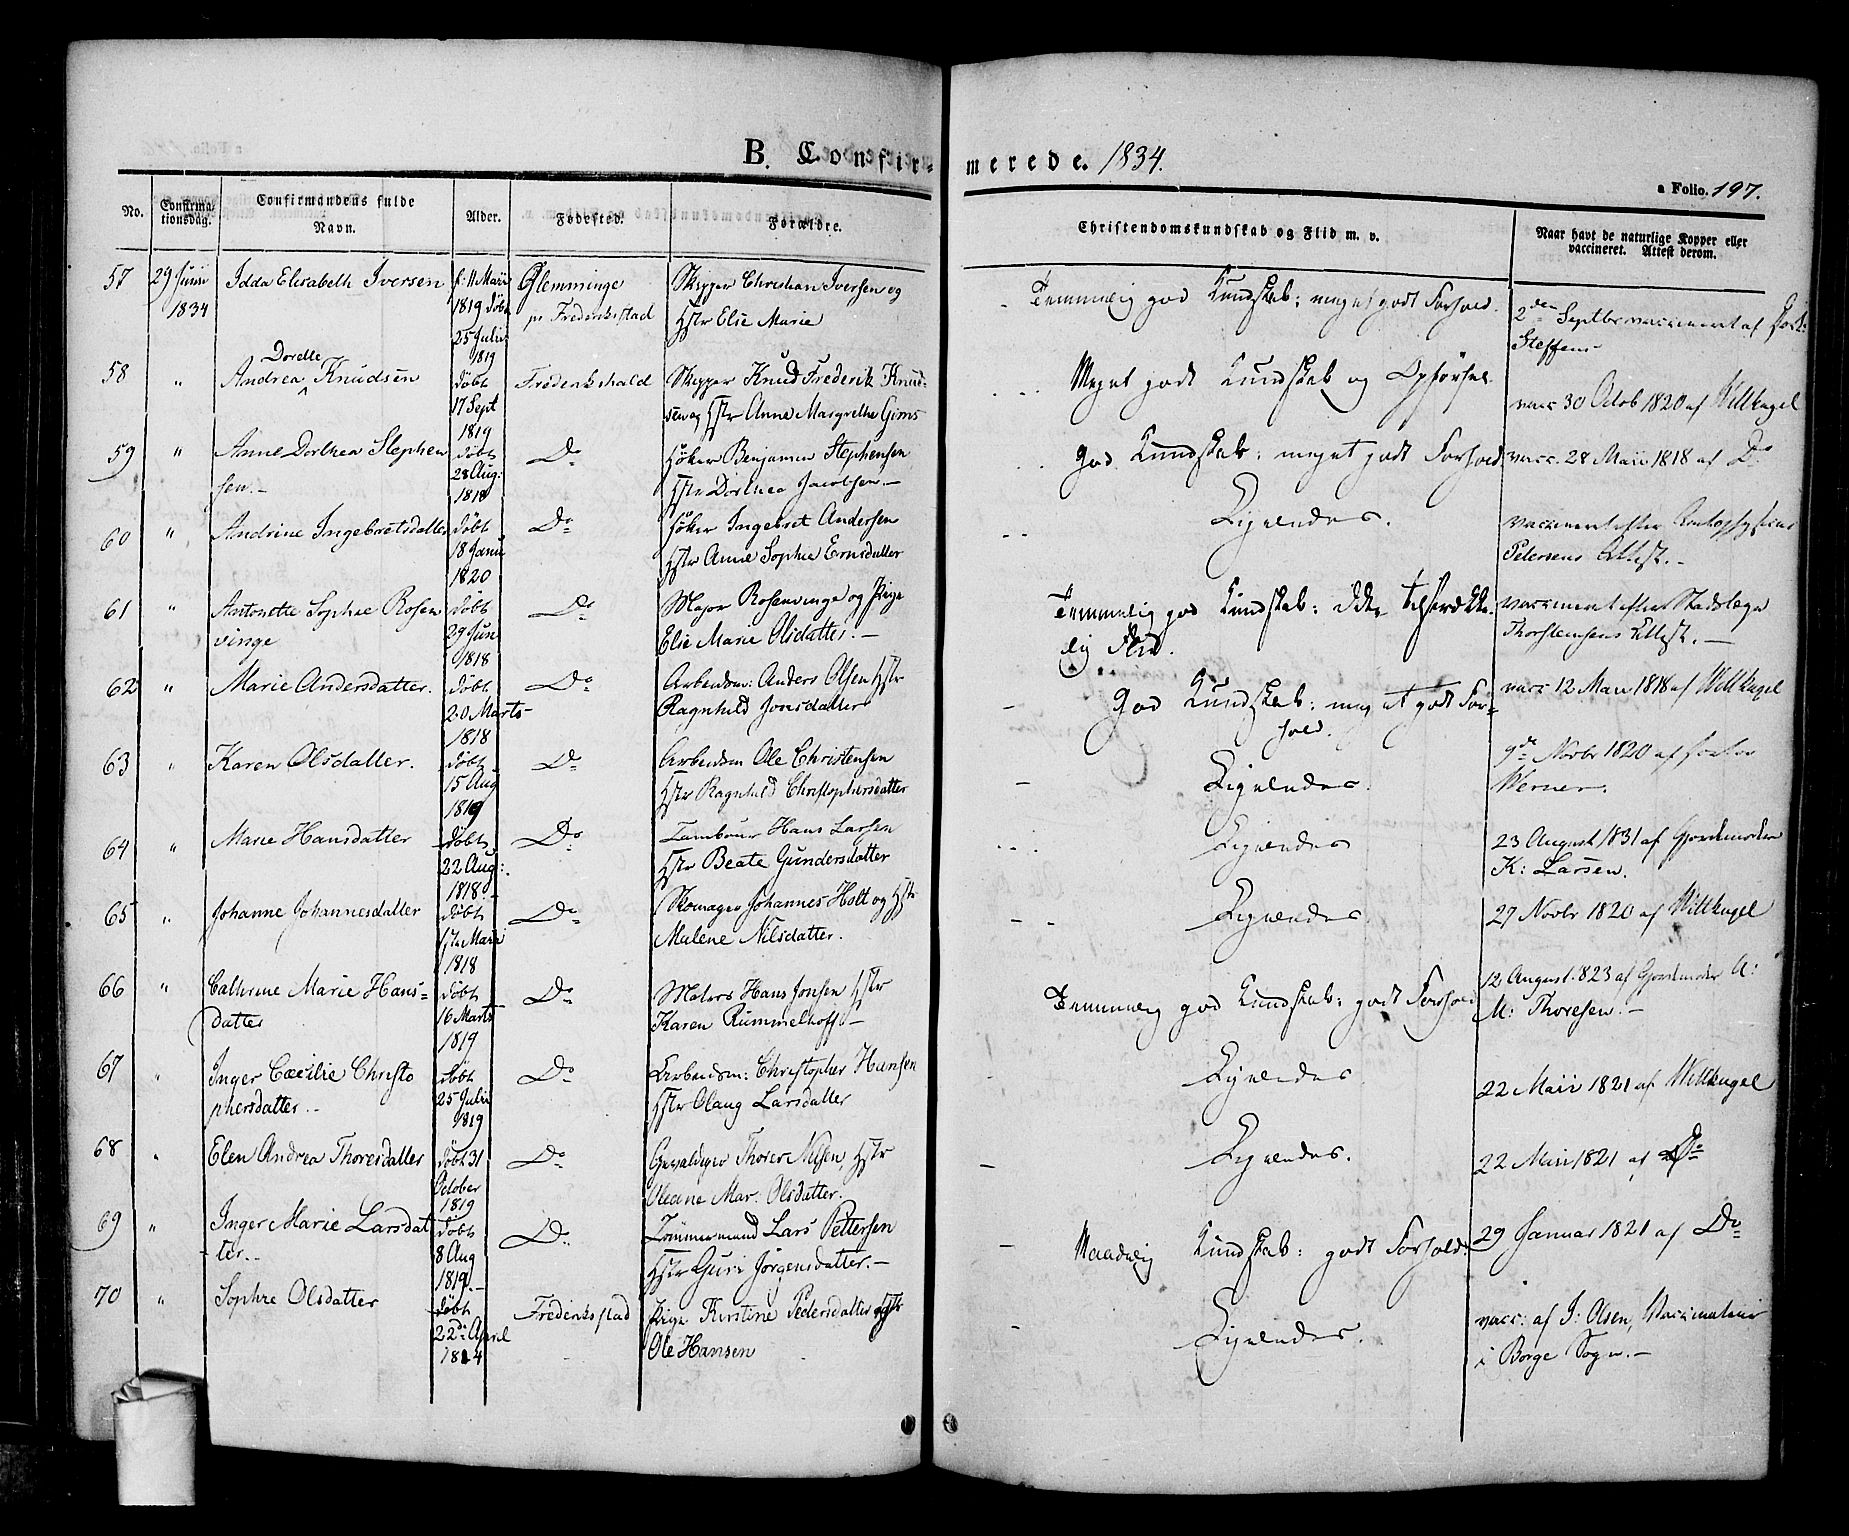 B. Confir-
merede. 1834.
a Folio. 197.
No.
Confirma-
tionsdag.
Confirmandens fulde
Navn.
Alder.
Fødested.
Forældre.
Christendomskundskab og Flid m. v.
Naar havt de naturlige Kopper eller
vaccineret. Attest derom.
57 29 Junii Idda Elisabeth Iversen f: 11 Maii Glemminge Skipper Christian Iversen og Temmelig god Kundskab; meget godt Forhold.
1834 1819 døbt pr Frederikstad Hstr Elie Marie 2den Septbr vaccineret af
25 Julii Steffens
1819
58 " Andrea Dorette Knudsen døbt Frederikshald Skipper Knud Frederik Knud- Meget godt Kundskab og Opførsel.
17 Sept sen og Hstr Anne Margrethe Gims vacc 30 Octob 1820 af Wittkugel
1819
59 " Anne Dorthea Stephen døbt Do Høker Benjamin Stephensen God Kundskab; meget godt Forhold vacc. 28 Maii 1818 af Do
sen.- 28 Aug: Hstr Dorthea Jacobsen.-
1818
60 " Andrine Ingebretsdatter døbt Do Høker Ingebret Andersen Ligeledes.
18 Janu Hstr Anne Sophie Ernsdatter vaccineret efter
1820 Petersens Attest.-
61 " Antonette Sophie Rosen døbt Do Major Rosenvinge og Pige Temmelig god Kundskab; ikke tilstrække- vaccineret efter Stadslæge
vinge 29 Jun Elie Marie Olsdatter.- lig Flid. Thorstensens Attest.-
1818
62 " Marie Andersdatter. døbt Do Arbeidsm: Anders Olsen Hstr God Kundskab; meget godt For- vacc 12 Maii 1818 af Wittkugel
20 Marts Ragnhild Jonsdatter hold.
1818
63 " Karen Olsdatter. døbt Do Arbeidsm Ole Christensen Ligeledes. 9de Novbr 1820 af
15 Aug Hstr Ragnhild Christophersdatter Werner.
1819
64 " Marie Hansdatter døbt Do Tambour Hans Larsen Ligeledes 23 August 1831 af Gjordemoder
22 Aug: Hstr Beate Gundersdatter K: Larsen.
1818.-
65 " Johanne Johannesdatter døbt Do Skomager Johannes Holt og Hstr Ligeledes. 27 Novbr 1820 af Wittkugel
1ste Maii Malene Nilsdatter.
1818
66 " Cathrine Marie Hans- døbt Do Maters Hans Jonsen Hstr Temmelig god Kundskab; godt Forhold 12 August 1823 af Gjordemoder A:
datter 16 Marts Karen Rummelhoff.- M: Thoresen.-
1819
67 " Inger Cæcilie Christo døbt Do Arbeidsm: Christopher Hansen Ligeledes. 22 Maii 1821 af Wittkugel
phersdatter.- 25 Julii Hstr Olaug Larsdatter
1819
68 " Elen Andrea Thoresdatter døbt 31 Do Gevaldiger Thorer Nilsen, Hstr Ligeledes. 22 Maii 1821 af Do
October Oleane Mar: Olsdatter.
1819
69 " Inger Marie Larsdat døbt Do Tømmermand Lars Pettersen Maadelig Kundskab; godt Forhold. 29 Januar 1821 af Do
ter.- 8 Aug Hstr Guri Jørgensdatter.-
1819.-
70 " Sophie Olsdatter døbt Frederikstad Pige Kirstine Pedersdatter og Ligeledes. vacc: af J: Olsen, Vaccinateur
22de April Ole Hansen i Borge Sogn.-
1814